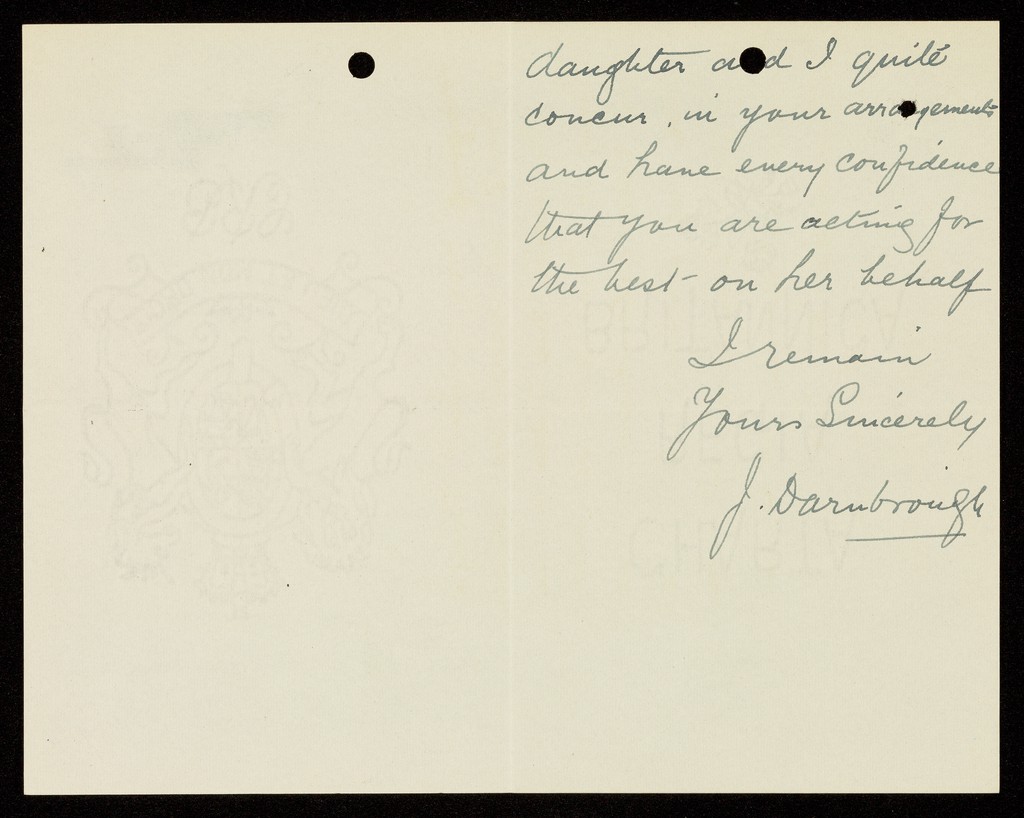 daughter and I quite
concur, in your arrangements
and have every confidence
that you are acting for
the best on her behalf
I remain
Yours Sincerely
J. Darnbrough
BRITANNICA
REGIA
CHARTA